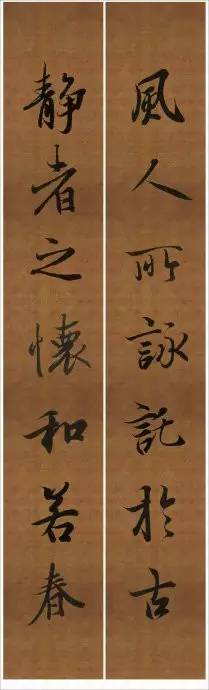 風人所詠託於古
靜者之懷和若春